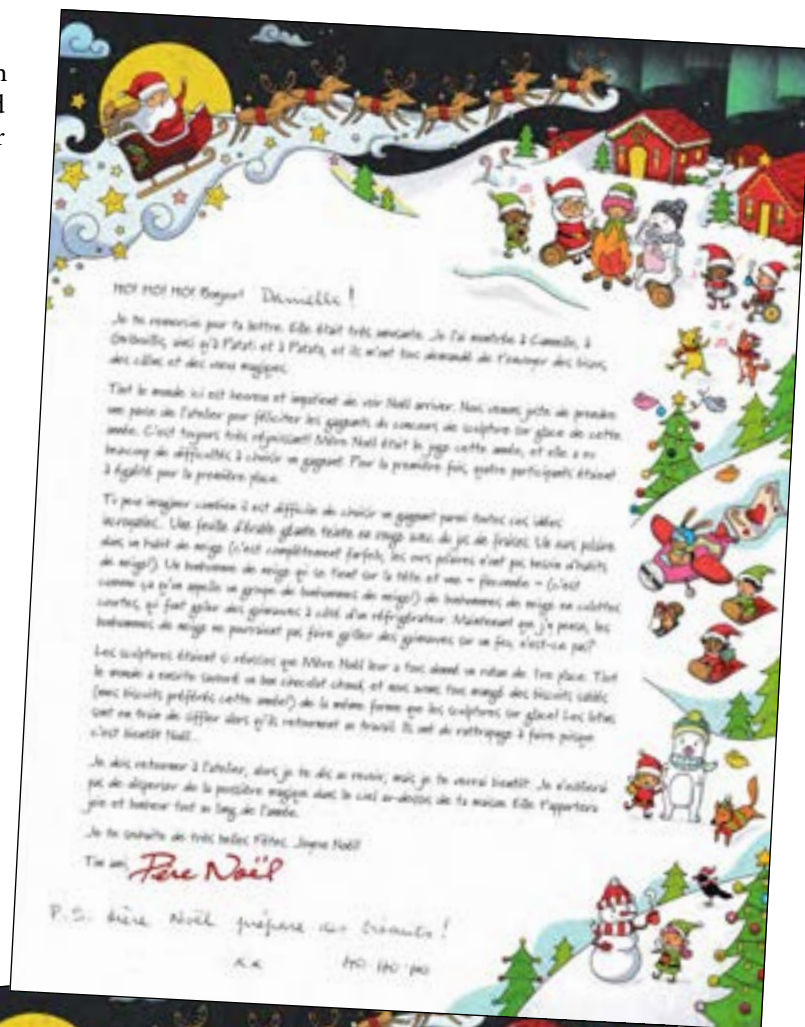 n
d
r
HO! HO! HO! Bonjour! Danielle!
Je te remercie pour ta lettre. Elle était très amusante. Je l'ai montrée à Cannelle, à
Gribouille, ainsi qu'à Patati et à Patata, et ils m'ont tous demandé de t'envoyer des bisous,
des câlins et des vœux magiques.
Tout le monde ici est heureux et impatient de voir Noël arriver. Nous venons juste de prendre
une pause de l'atelier pour féliciter les gagnants du concours de sculpture sur glace de cette
année. C'est toujours très réjouissant! Mère Noël était le juge cette année, et elle a eu
beaucoup de difficultés à choisir un gagnant. Pour la première fois, quatre participants étaient
à égalité pour la première place.
Tu peux imaginer combien il est difficile de choisir un gagnant parmi toutes ces idées
incroyables. Une feuille d'érable géante teinte en rouge avec du jus de fraises. Un ours polaire
dans un habit de neige (c'est complètement farfelu, les ours polaires n'ont pas besoin d'habits
de neige!). Un bonhomme de neige qui se tient sur la tête et une « » (c'est
comme ça qu'on appelle un groupe de bonhommes de neige!) de bonhommes de neige en culottes
courtes, qui font griller des guimauves à côté d'un réfrigérateur. Maintenant que j'y pense, les
bonhommes de neige ne pourraient pas faire griller des guimauves sur un feu, n'est-ce pas?
Les sculptures étaient si réussies que Mère Noël leur a tous donné un ruban de 1re place. Tout
le monde a ensuite savouré un bon chocolat chaud, et nous avons tous mangé des biscuits sablés
(mes biscuits préférés cette année!) de la même forme que les sculptures sur glace! Les lutins
sont en train de siffler alors qu'ils retournent au travail. Ils ont du rattrapage à faire puisque
c'est bientôt Noël...
Je dois retourner à l'atelier, alors je te dis au revoir, mais je te verrai bientôt. Je n'oublierai
pas de disperser de la poussière magique dans le ciel au-dessus de ta maison. Elle t'apportera
joie et bonheur tout au long de l'année.
Je te souhaite de très belles Fêtes. Joyeux Noël!
Ton ami, Père Noël
P.S. Mère Noël prépare des !
xx HO HO HO